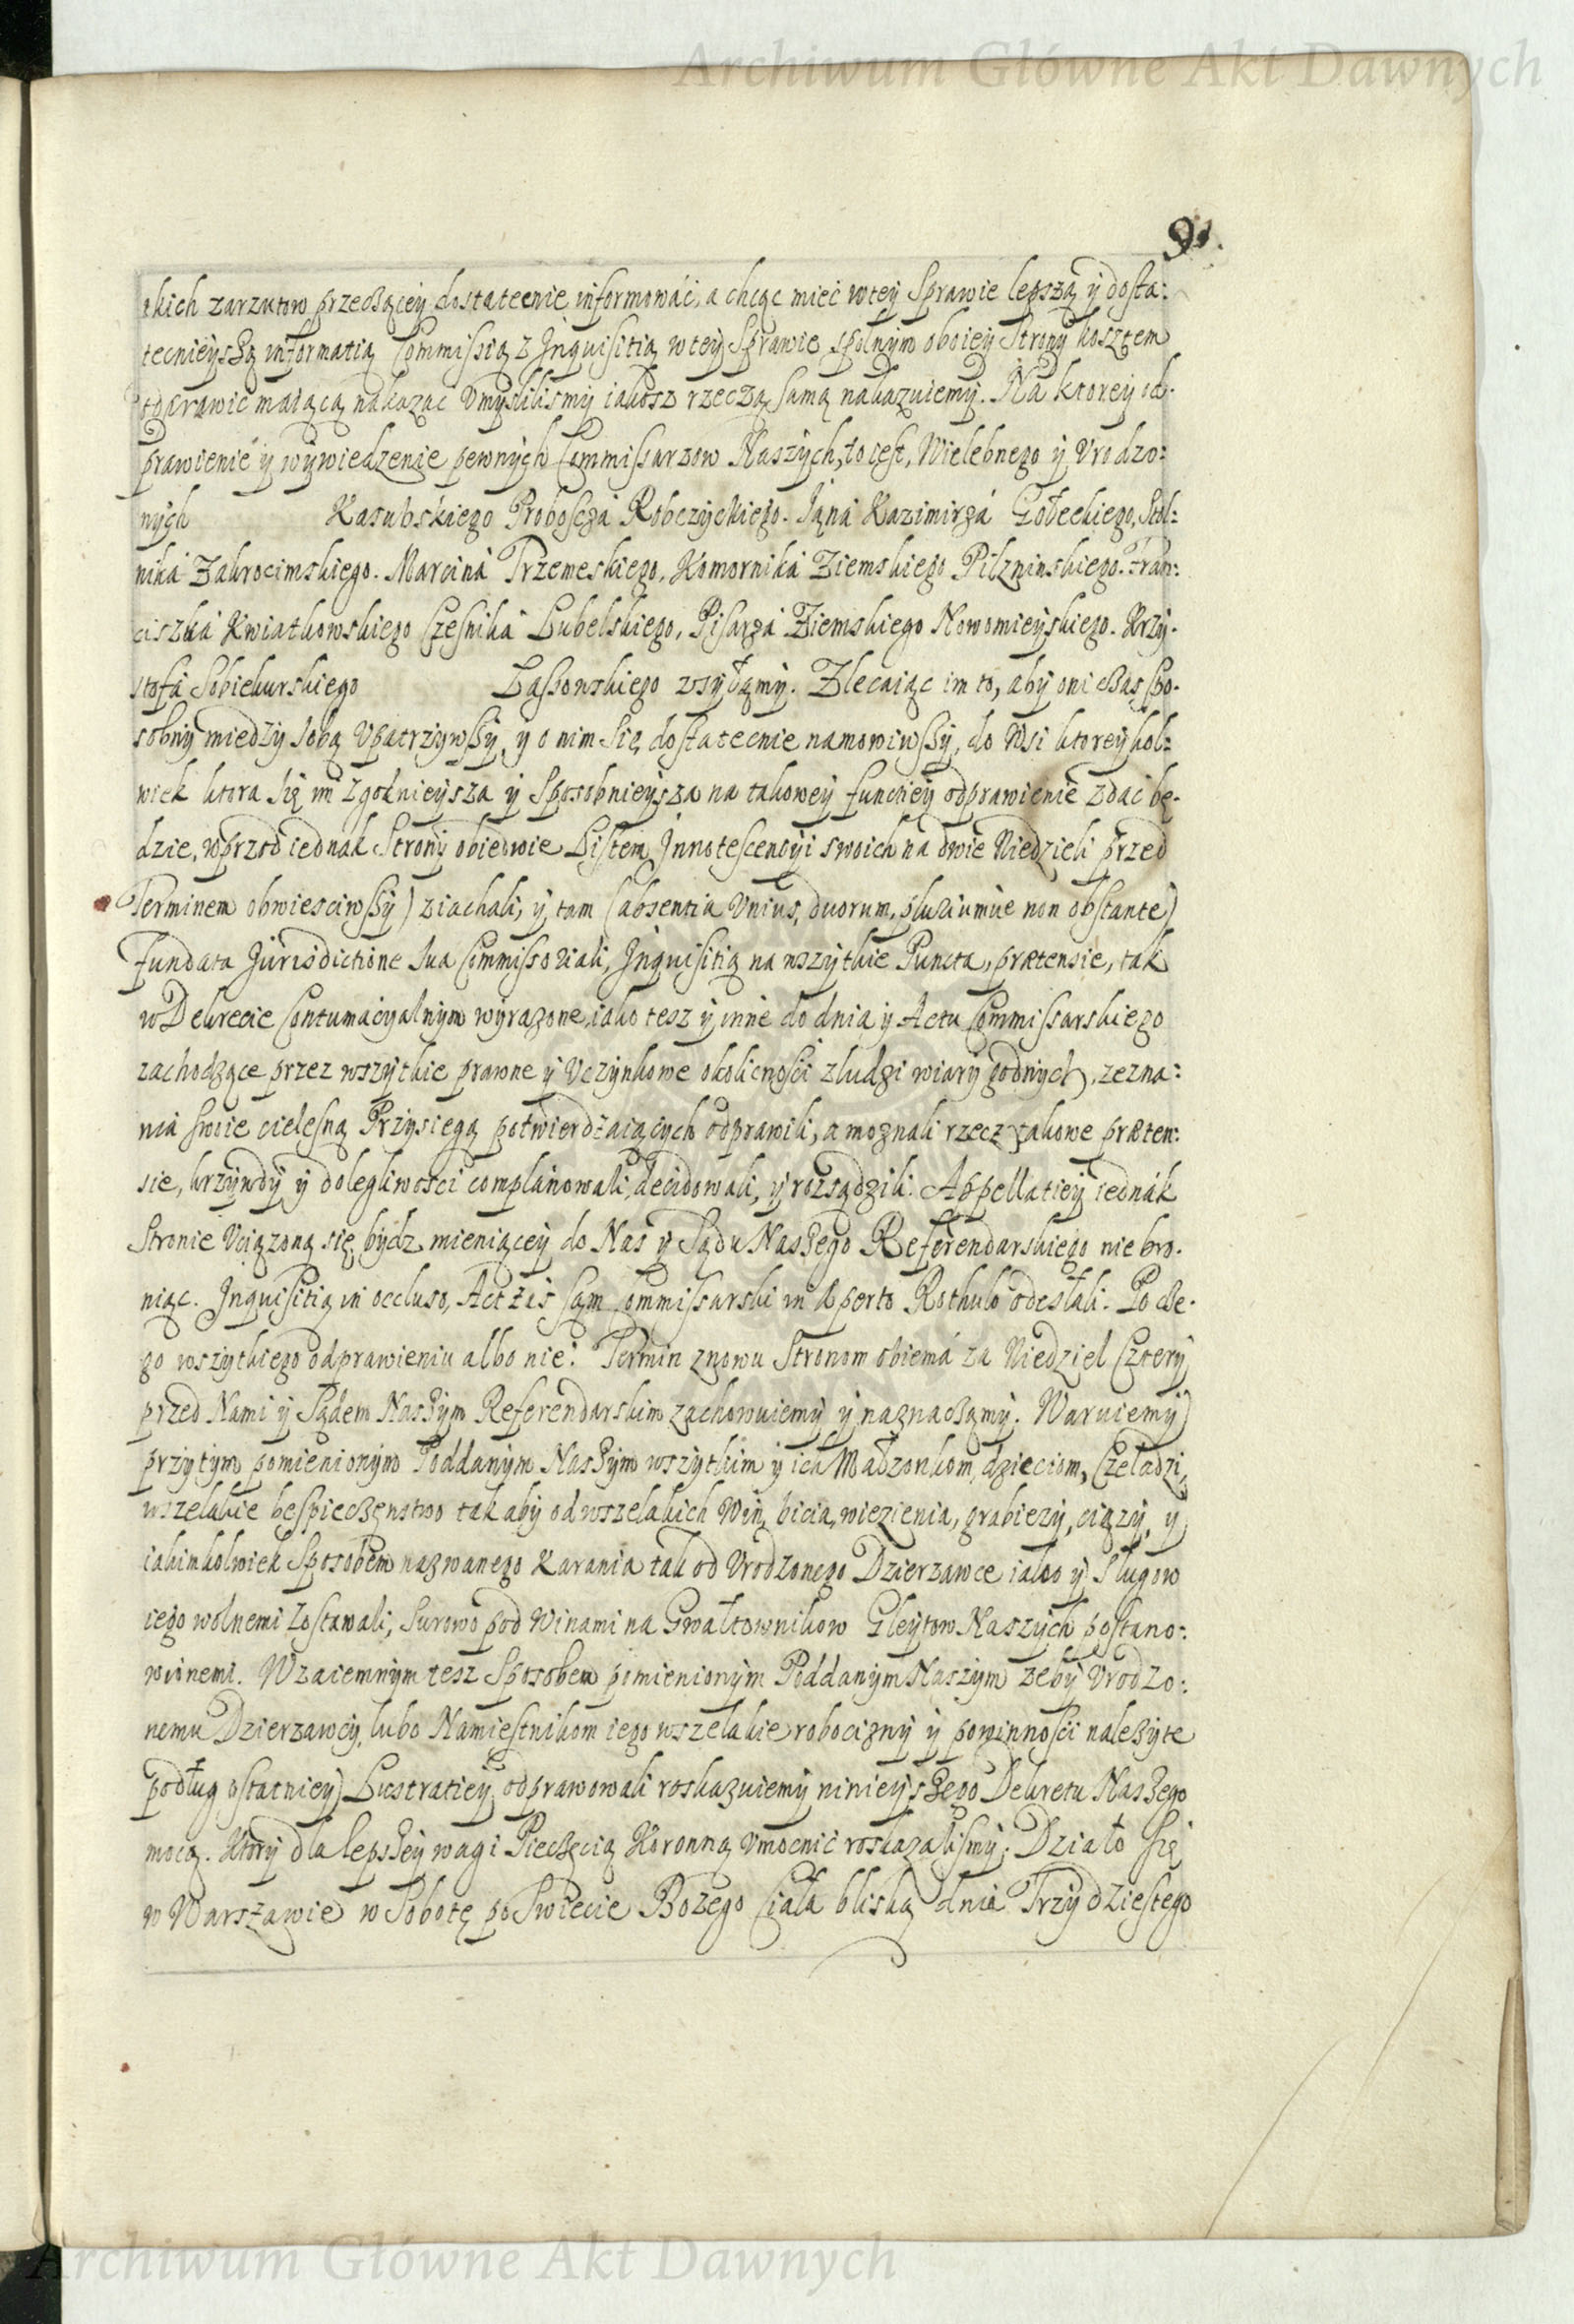 Archiwum Główne Akt Dawnych
91.
zarzutow przeczącey dostatecnie informować, a chcąc mieć w tey Sprawie lepszą y dosta:
tecnieyszą informatią Commissią z Inquisitią w tey Sprawie spolnym oboiey Strony kosztem
odprawić maiącą nakazac Vmyslilismy iakosz rzeczą samą nakazuiemy. Na ktorey od:
prawienie y wywiedzenie pewnych Commissarzow Naszych, to iest, Wielebnego y Vrodzo:
nych Kasubskiego Proboscza Robczyckiego. Jana Kazimirza Gołeckiego, Stol:
nika Zakrocimskiego. Marcina Trzemeskiego, Komornika Ziemskiego Pilzninskiego. Fran:
ciszka Kwiatkowskiego Czesnika Lubelskiego, Pisarza Ziemskiego Nowomieyskiego. Krzy:
stofa Sobiekurskiego Lassowskiego zsyłamy. Zlecaiąc im to, aby oni czas spo:
sobny miedzy sobą Vpatrzywszy, y o nim się dostatecnie namowiwszy, do Wsi ktoreykol:
wiek ktora się im zgodnieysza y sposobnieysza na takowey functiey odprawienie zdać bę:
dzie, wprzod iednak Strony obiedwie Listem Innotescencyi swoich na dwie Niedzieli przed
Terminem obwiesciwszy) ziachali, y tam (absentia Vnius, duorum, pluriumue non obstante)
Fundata Jurisdictione sua Commissoriali, Inquisitią na wszytkie Puncta, prætensie, tak
w Dekrecie Contumacyalnym wyrazone, iako tesz y inne do dnia y Actu Commissarskiego
zachodzące przez wszytkie prawne y Vczynkowe okolicności z ludzi wiary godnych, zezna:
nia swoie cielesną Przysięgą potwierdzaiących odprawili, a moznali rzecz takowe præten:
sie, krzywdy y dolegliwości complanowali, decidowali, y rozsądzili. Appellatiey iednak
Stronie Vciązoną się bydz mieniącey do Nas y Sądu Naszego Referendarskiego nie bro:
niąc. Inquisitią in occluso, Act zas sam Commissarski in Aperto Rothulo odesłali. Po cze:
go wszytkiego odprawieniu albo nie: Termin znowu Stronom obiema za Niedziel Cztery
przed Nami y Sądem Naszym Referendarskim zachowuiemy y naznaczamy. Waruiemy
przytym pomienionym Poddanym Naszym wszytkim y ich Małzonkom, dzieciom, Czeladzi,
wszelakie bespieczenstwo tak aby od wszelakich Win, bicia, wiezienia, grabiezy, ciązy, y
iakimkolwiek sposobem nazwanego Karania tak od Vrodzonego Dzierzawce iako y Sługow
iego wolnemi zostawali, surowo pod Winami na Gwałtownikow Gleytow Naszych postano:
wionemi. Wzaiemnym tesz sposobem pomienionym Poddanym Naszym zeby Vrodzo:
nemu Dzierzawcy, lubo Namiestnikom iego wszelakie robocizny y powinności należyte
podług ostatniey Lustratiey odprawowali roskazuiemy ninieyszego Dekretu Naszego
mocą. Ktory dla lepszey wagi Pieczęcią Koronną Vmocnić roskazalismy. Działo się
w Warszawie w Sobotę po Swiecie Bozego Ciała bliską dnia Trzydziestego
Archiwum Główne Akt Dawnych